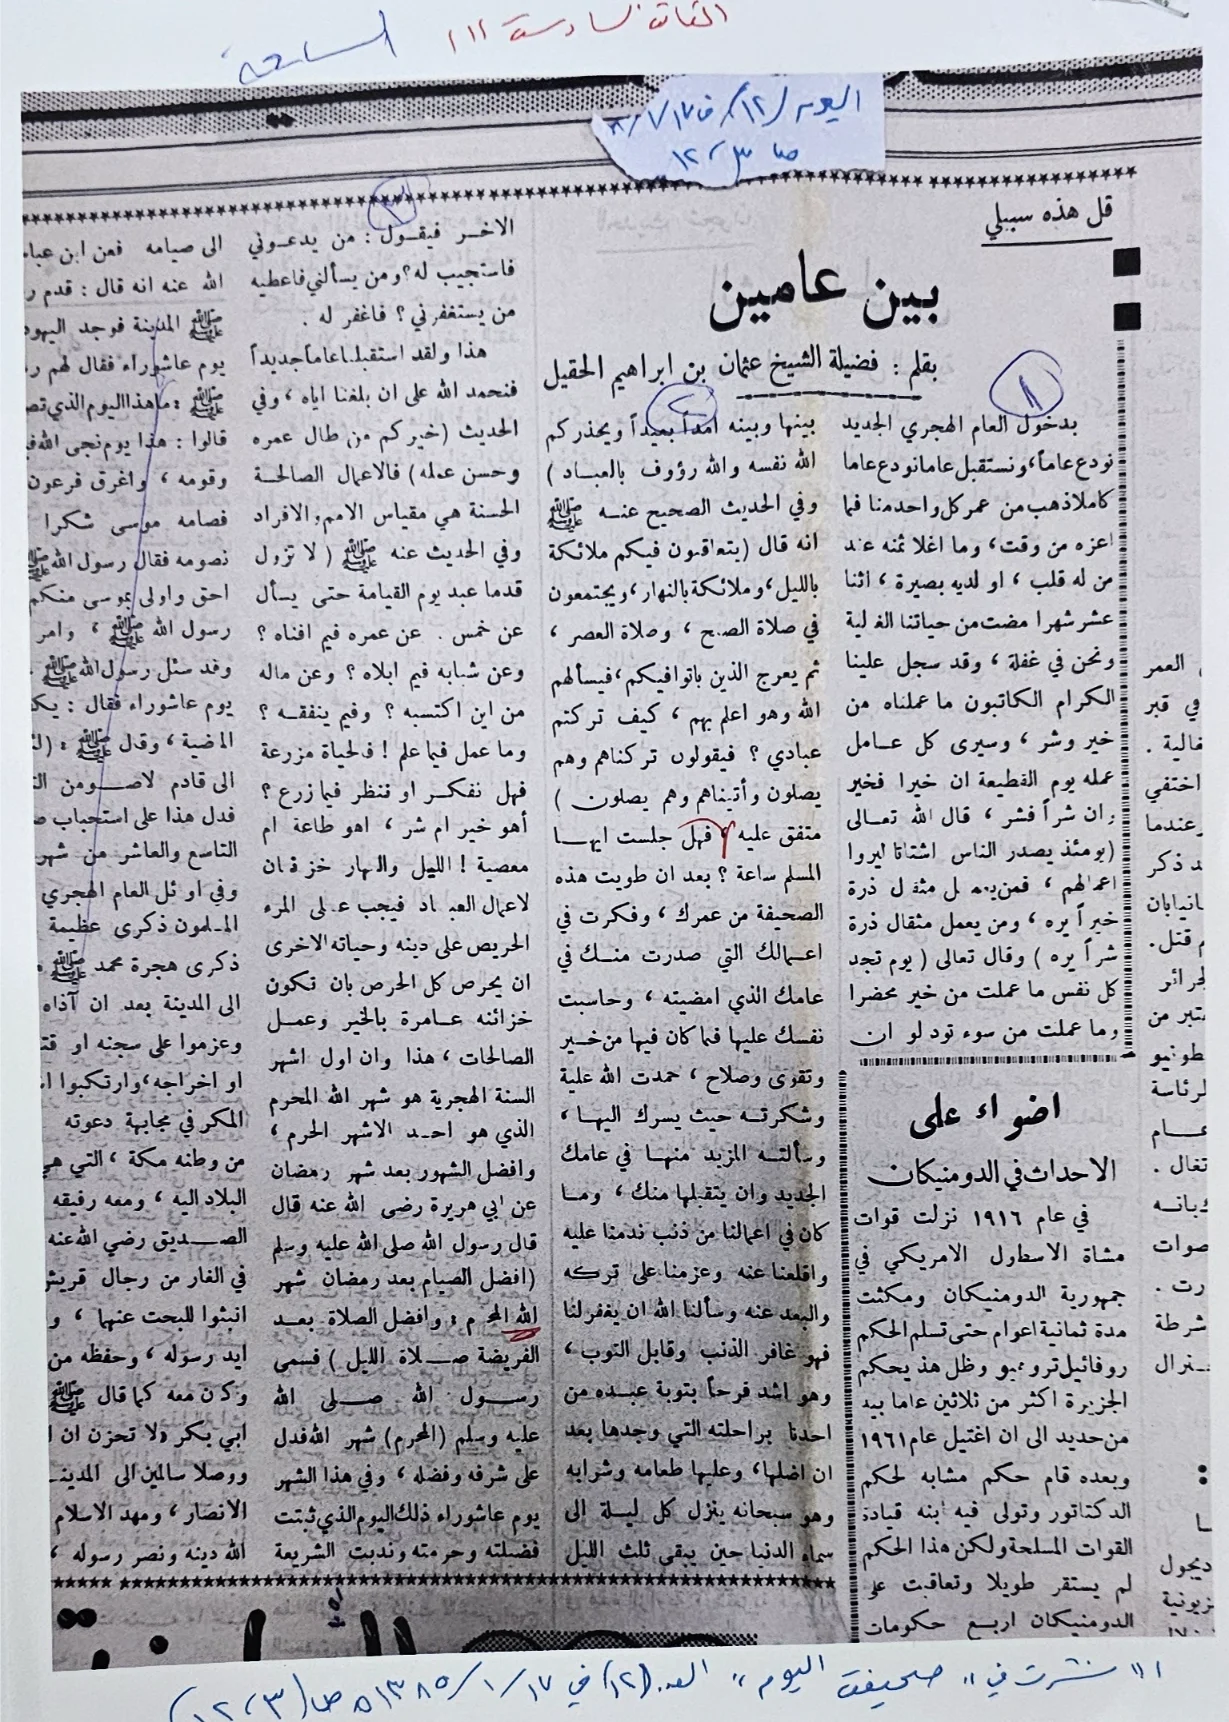 المقالة السادسة ١١١
قل هذه سبيلي
بين عامين
بقلم : فضيلة الشيخ عثمان بن ابراهيم الحقيل
١
بدخول العام الهجري الجديد
نودع عاماً، ونستقبل عاما نودع عاما
كاملا ذهب من عمر كل واحد منا فما
اعزه من وقت، وما اغلا ثمنه عند
من له قلب ، او لديه بصيرة ، اثنا
عشر شهرا مضت من حياتنا الغالية
ونحن في غفلة ، وقد سجل علينا
الكرام الكاتبون ما عملناه من
خير وشر ، وسيرى كل عامل
عمله يوم القطيعة ان خيرا فخير
وان شراً فشر ، قال الله تعالى
(يومئذ يصدر الناس اشتاتا ليروا
اعمالهم ، فمن يعمل مثقال ذرة
خيراً يره ، ومن يعمل مثقال ذرة
شراً يره ) وقال تعالى ( يوم تجد
كل نفس ما عملت من خير محضرا
وما عملت من سوء تود لو ان
٢
بينها وبينه امداً بعيداً ويحذركم
الله نفسه والله رؤوف بالعباد )
وفي الحديث الصحيح عنه ﷺ
انه قال (يتعاقبون فيكم ملائكة
بالليل، وملائكة بالنهار، ويجتمعون
في صلاة الصبح ، وصلاة العصر ،
ثم يعرج الذين باتوا فيكم، فيسألهم
الله وهو اعلم بهم ، كيف تركتم
عبادي ؟ فيقولون تركناهم وهم
يصلون وأتيناهم وهم يصلون )
متفق عليه ، فهل جلست ايها
المسلم ساعة ؟ بعد ان طويت هذه
الصحيفة من عمرك ، وفكرت في
اعمالك التي صدرت منك في
عامك الذي امضيته ، وحاسبت
نفسك عليها فما كان فيها من خير
وتقوى وصلاح ، حمدت الله علية
وشكرته حيث يسرك اليها ،
وسألته المزيد منها في عامك
الجديد وان يتقبلها منك ، وما
كان في اعمالنا من ذنب ندمنا عليه
واقلعنا عنه وعزمنا على تركه
والبعد عنه وسألنا الله ان يغفر لنا
فهو غافر الذنب وقابل التوب ،
وهو اشد فرحاً بتوبة عبده من
احدنا براحلته التي وجدها بعد
ان اضلها، وعليها طعامه وشرابه
وهو سبحانه ينزل كل ليلة الى
سماء الدنيا حين يبقى ثلث الليل
٣
الاخر فيقول : من يدعوني
فاستجيب له؟ ومن يسألني فاعطيه
من يستغفرني ؟ فاغفر له .
هذا ولقد استقبلنا عاما جديداً
فنحمد الله على ان بلغنا اياه ، وفي
الحديث (خيركم من طال عمره
وحسن عمله) فالاعمال الصالحة
الحسنة هي مقياس الامم والافراد
وفي الحديث عنه ﷺ ( لا تزول
قدما عبد يوم القيامة حتى يسأل
عن خمس . عن عمره فيم افناه ؟
وعن شبابه فيم ابلاه ؟ وعن ماله
من اين اكتسبه ؟ وفيم ينفقه ؟
وما عمل فيما علم ! فالحياة مزرعة
فهل نفكر او ننظر فيما زرع ؟
أهو خير ام شر ، اهو طاعة ام
معصية ! الليل والنهار خزانان
لاعمال العباد فيجب على المرء
الحريص على دينه وحياته الاخرى
ان يحرص كل الحرص بان تكون
خزائنه عامرة بالخير وعمل
الصالحات ، هذا وان اول اشهر
السنة الهجرية هو شهر الله المحرم
الذي هو احد الاشهر الحرم ،
وافضل الشهور بعد شهر رمضان
عن ابي هريرة رضى الله عنه قال
قال رسول الله صلى الله عليه وسلم
(افضل الصيام بعد رمضان شهر
الله المحرم ، وافضل الصلاة بعد
الفريضة صلاة الليل ) فسمى
رسول الله صلى الله
عليه وسلم (المحرم) شهر الله فدل
على شرفه وفضله ، وفي هذا الشهر
يوم عاشوراء ذلك اليوم الذي ثبتت
فضيلته وحرمته وندبت الشريعة
الى صيامه فعن ابن عبا
الله عنه انه قال : قدم ر
ﷺ المدينة فوجد اليهود
يوم عاشوراء فقال لهم ر
ﷺ : ما هذا اليوم الذي تص
قالوا : هذا يوم نجى الله ف
وقومه ، وأغرق فرعون
فصامه موسى شكرا
نصومه فقال رسول الله ﷺ
احق واولى بموسى منكم
رسول الله ﷺ ، وامر
وقد سئل رسول الله ﷺ
يوم عاشوراء فقال : يك
الماضية ، وقال ﷺ : (لئ
الى قادم لاصومن الت
فدل هذا على استحباب ص
التاسع والعاشر من شهر
وفي اوائل العام الهجري
المسلمون ذكرى عظيمة
ذكرى هجرة محمد ﷺ
الى المدينة بعد ان آذاه
وعزموا على سجنه او قت
او اخراجه، وارتكبوا ا
المكر في مجابهة دعوته
من وطنه مكة ، التي هي
البلاد اليه ، ومعه رفيقه
الصديق رضي الله عنه
في الغار من رجال قريش
انبثوا للبحث عنهما ، و
ايد رسوله ، وحفظه من
وكان معه كما قال ﷺ
ابي بكر ولا تحزن ان ا
ووصلا سالمين الى المدينـ
الانصار ، ومهد الاسلام
الله دينه ونصر رسوله ،
اضواء على
الاحداث في الدومنيكان
في عام ١٩١٦ نزلت قوات
مشاة الاسطول الامريكي في
جمهورية الدومنيكان ومكثت
مدة ثمانية اعوام حتى تسلم الحكم
روفائيل تروجييو وظل هذ يحكم
الجزيرة اكثر من ثلاثين عاما بيد
من حديد الى ان اغتيل عام ١٩٦١
وبعده قام حكم مشابه لحكم
الدكتاتور وتولى فيه ابنه قيادة
القوات المسلحة ولكن هذا الحكم
لم يستقر طويلا وتعاقبت على
الدومنيكان اربع حكومات
العمر
في قبر
غالية .
اختفي
وعندما
ذكر
قتل.
لجزائر
من
لرئاسة
عام
صوات
شرطة
نرال
ديجول
نشرت في " صحيفة اليوم " العدد (١٢) في ١٣٨٥/١/١٧هـ ص (١٢،٣)